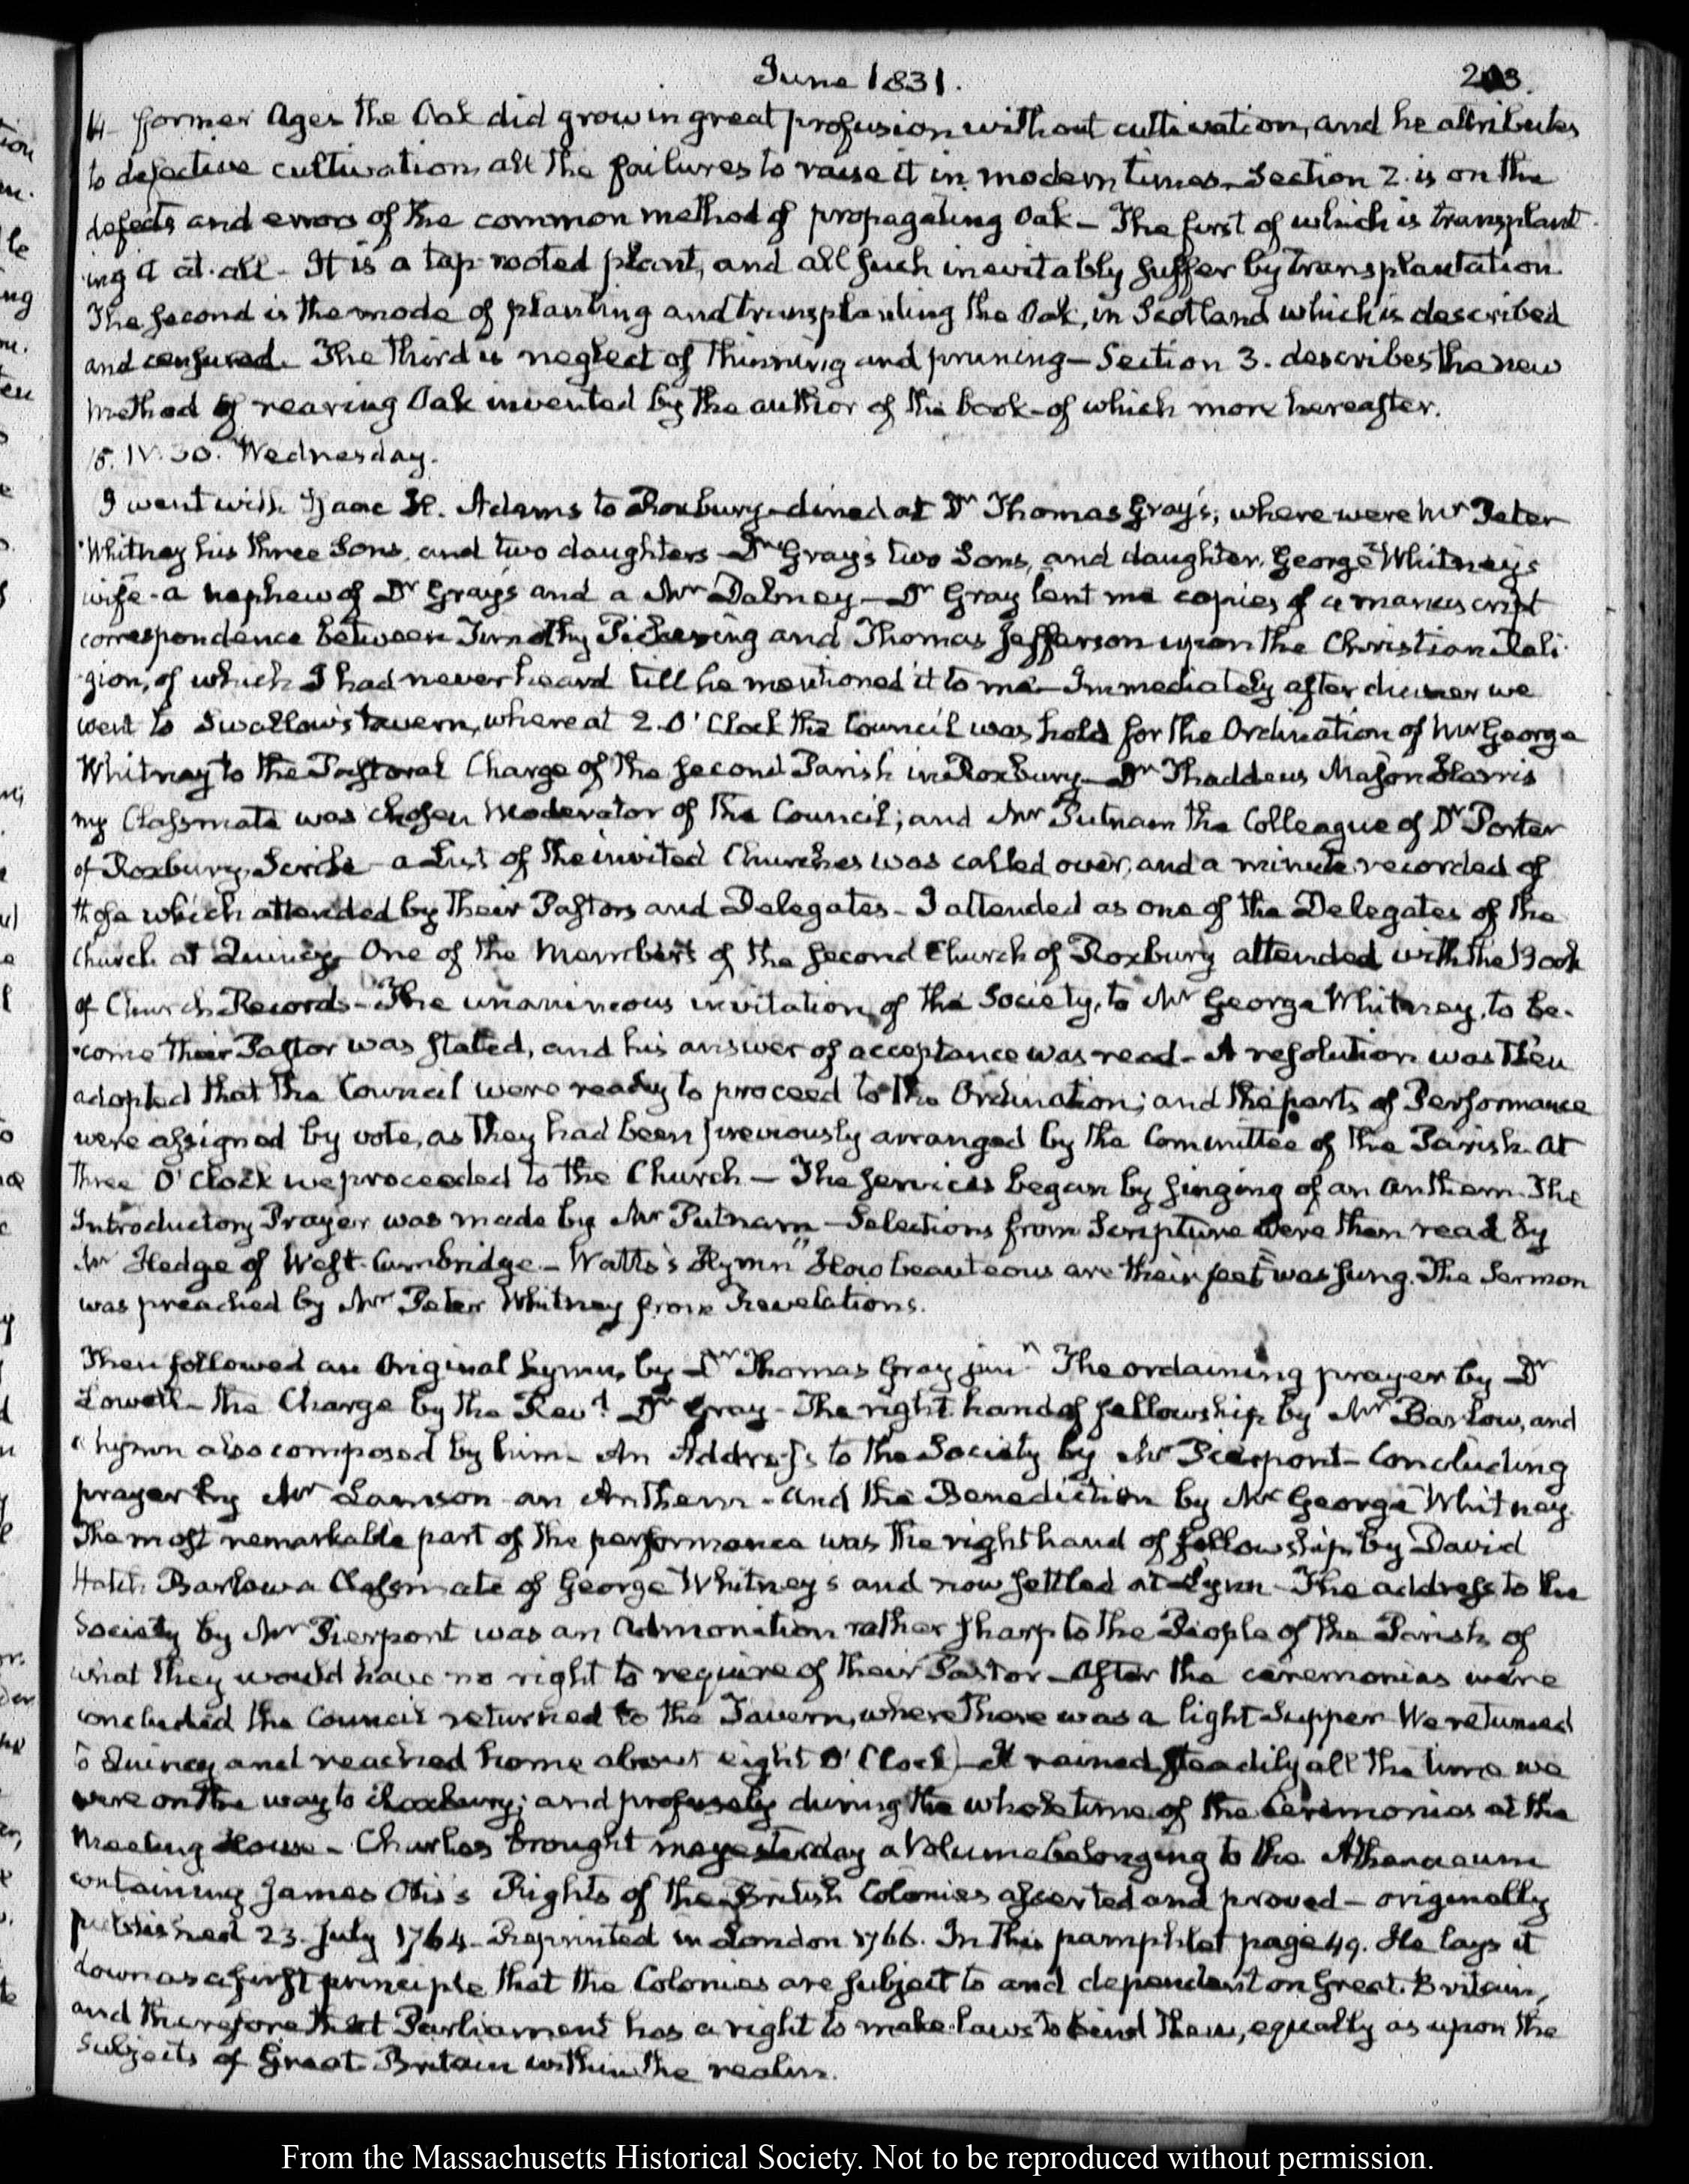 June 1831.
203.
14- former Ages the Oak did grow in great profusion without cultivation, and he attributes
to defective cultivation all the failures to raise it in modern times. Section 2. is on the
defects and errors of the common method of propagating Oak - The first of which is transplant
-ing it at all - It is a tap-rooted plant, and all such inevitably suffer by transplantation.
The second is the mode of planting and transplanting the Oak, in Scotland which is described
and censured. The third is neglect of thinning and pruning - Section 3. describes the new
method of rearing Oak invented by the author of the book - of which more hereafter.
15. IV. 30. Wednesday.
I went with Isaac H. Adams to Roxbury - dined at Dr Thomas Gray's; where were Mr Peter
Whitney his three Sons, and two daughters - Dr Gray's two Sons, and daughter, George Whitney's
wife - a nephew of Dr Gray's and a Mr Dabney - Dr Gray lent me copies of a manuscript
correspondence between Timothy Pickering and Thomas Jefferson upon the Christian Reli-
-gion, of which I had never heard till he mentioned it to me - Immediately after dinner we
went to Swallow's tavern, where at 2. O'Clock the Council was held for the Ordination of Mr George
Whitney to the Pastoral Charge of the second Parish in Roxbury - Dr Thaddeus Mason Harris
my Classmate was chosen Moderator of the Council; and Mr Putnam the Colleague of Dr Porter
of Roxbury, Scribe - a List of the invited Churches was called over, and a minute recorded of
those which attended by their Pastors and Delegates - I attended as one of the Delegates of the
Church at Quincy. One of the Members of the second Church of Roxbury attended with the Book
of Church Records - The unanimous invitation of the Society, to Mr George Whitney, to be-
-come their Pastor was stated, and his answer of acceptance was read - A resolution was then
adopted that the Council were ready to proceed to the Ordination; and the parts of Performance
were assigned by vote, as they had been previously arranged by the Committee of the Parish. At
three O'Clock we proceeded to the Church - The services began by singing of an Anthem. The
Introductory Prayer was made by Mr Putnam - Selections from Scripture were then read by
Mr Hedge of West-Cambridge - Watts's Hymn "How beauteous are their feet" was sung. The Sermon
was preached by Mr Peter Whitney from Revelations.
Then followed an Original hymn, by Dr Thomas Gray junr The ordaining prayer by Dr
Lowell - the Charge by the Revd Dr Gray - The right hand of fellowship by Mr Barlow, and
a hymn also composed by him - An Address to the Society by Mr Pierpont - Concluding
prayer by Mr Lamson - an Anthem - and the Benediction by Mr George Whitney.
The most remarkable part of the performance was the right hand of fellowship by David
Hatch Barlow a Classmate of George Whitney's and now settled at Lynn - The address to the
Society by Mr Pierpont was an admonition rather sharp to the People of the Parish of
what they would have no right to require of their Pastor - After the ceremonies were
concluded the Council returned to the Tavern, where there was a light Supper. We returned
to Quincy and reached home about eight O'Clock - It rained steadily all the time we
were on the way to Roxbury; and profusely during the whole time of the Ceremonies at the
Meeting House - Charles brought me yesterday a Volume belonging to the Athenaeum
containing James Otis's Rights of the British Colonies asserted and proved - originally
published 23. July 1764 - Reprinted in London 1766. In this pamphlet page 49. He lays it
down as a first principle that the Colonies are subject to and dependent on Great-Britain,
and therefore that Parliament has a right to make laws to bind them, equally as upon the
subjects of Great-Britain within the realm.
From the Massachusetts Historical Society. Not to be reproduced without permission.